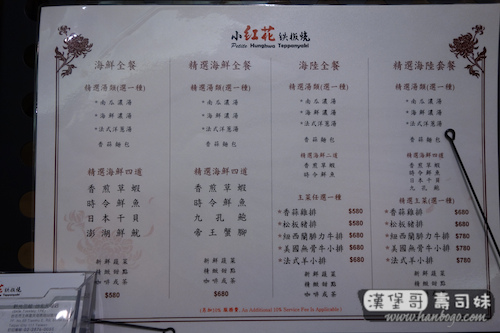 小紅花鉄板燒
Petite Hunghwa Teppanyaki
海鮮全餐
精選湯類(選一種)
*南瓜濃湯
*海鮮濃湯
*法式洋蔥湯
香蒜麵包
精選海鮮四道
香煎草蝦
時令鮮魚
日本干貝
澎湖鮮魷
新鮮蔬菜
精緻甜點
咖啡或茶
$580
精選海鮮全餐
精選湯類(選一種)
*南瓜濃湯
*海鮮濃湯
*法式洋蔥湯
香蒜麵包
精選海鮮四道
香煎草蝦
時令鮮魚
九孔鮑
帝王蟹腳
新鮮蔬菜
精緻甜點
咖啡或茶
$680
海陸全餐
精選湯類(選一種)
*南瓜濃湯
*海鮮濃湯
*法式洋蔥湯
香蒜麵包
精選海鮮二道
香煎草蝦
時令鮮魚
主菜任選一種
*香蒜雞排 $580
*松板豬排 $580
*紐西蘭腓力牛排 $680
*美國無骨牛小排 $680
*法式羊小排 $680
新鮮蔬菜
精緻甜點
咖啡或茶
精選海陸套餐
精選湯類(選一種)
*南瓜濃湯
*海鮮濃湯
*法式洋蔥湯
香蒜麵包
精選海鮮四道
香煎草蝦
時令鮮魚
日本干貝
九孔鮑
精選主菜(選一種)
*香蒜雞排 $680
*松板豬排 $680
*紐西蘭腓力牛排 $780
*美國無骨牛小排 $780
*法式羊小排 $780
新鮮蔬菜
(另加10% 服務費 An Additional 10% Service Fee is Applicable)
漢堡哥 壽司妹
www.hanbogo.com